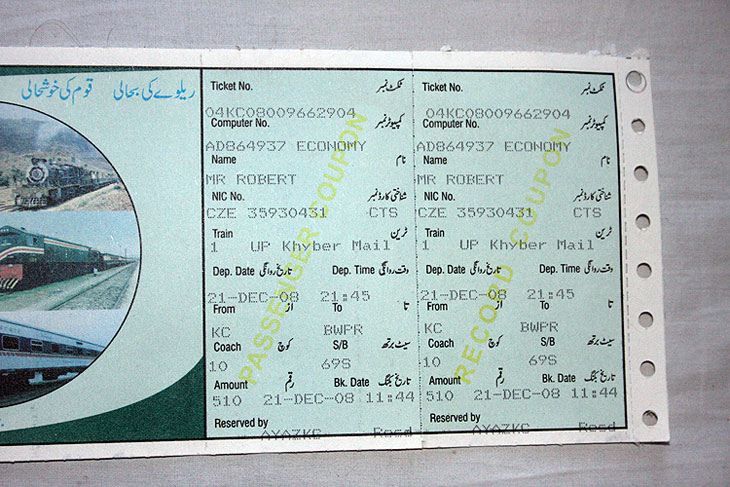 ریلوے کی بحالی قوم کی خوشحالی
Ticket No. ٹکٹ نمبر
04KC08009662904
Computer No. کمپیوٹر نمبر
AD864937 ECONOMY
Name نام
MR ROBERT
NIC No. شناختی کارڈ نمبر
CZE 35930431 CTS
Train ٹرین
1 UP Khyber Mail
Dep. Date تاریخ روانگی Dep. Time وقت روانگی
21-DEC-08 21:45
From از To تا
KC BWPR
Coach کوچ S/B سیٹ برتھ
10 69S
Amount رقم Bk. Date تاریخ بکنگ
510 21-DEC-08 11:44
Reserved by
AYAZKC Resd
PASSENGER COUPON
Ticket No. ٹکٹ نمبر
04KC08009662904
Computer No. کمپیوٹر نمبر
AD864937 ECONOMY
Name نام
MR ROBERT
NIC No. شناختی کارڈ نمبر
CZE 35930431 CTS
Train ٹرین
1 UP Khyber Mail
Dep. Date تاریخ روانگی Dep. Time وقت روانگی
21-DEC-08 21:45
From از To تا
KC BWPR
Coach کوچ S/B سیٹ برتھ
10 69S
Amount رقم Bk. Date تاریخ بکنگ
510 21-DEC-08 11:44
Reserved by
AYAZKC Resd
RECORD COUPON